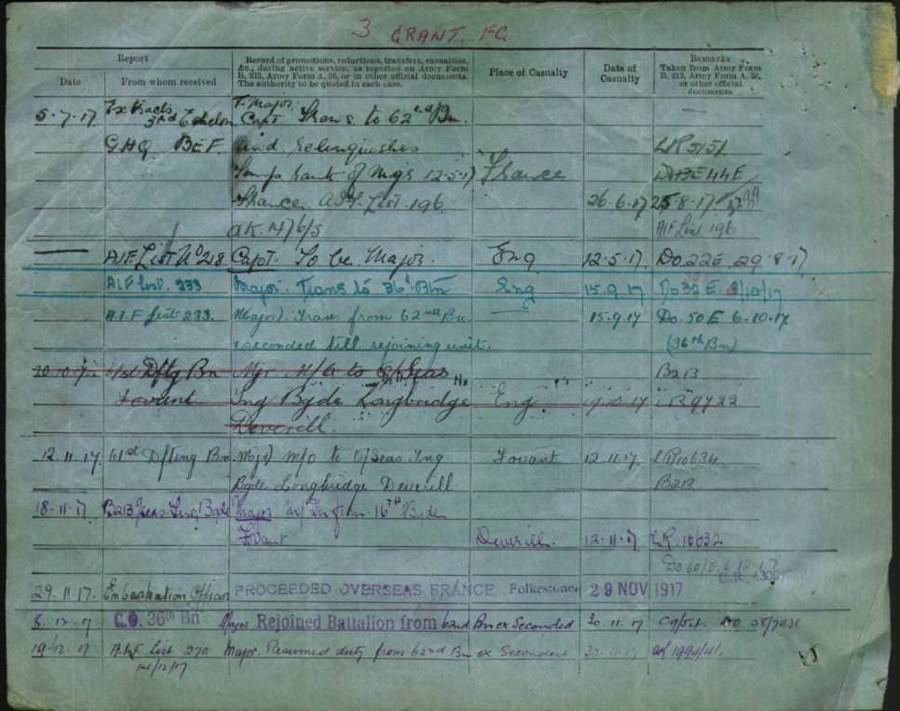 3 GRANT. FG
Report
Date
From whom received
Record of promotions, reductions, transfers, casualties, &c., during active service, as reported on Army Form B. 213, Army Form A. 36, or in other official documents. The authority to be quoted in each case.
Place of Casualty
Date of Casualty
Remarks
Taken from Army Form B. 213, Army Form A. 36, or other official documents
5.7.17. Extracts T. Major
3rd Echelon Capt Trans to 62nd Bn.
GHQ BEF. and relinquishes LR 5151
Temp rank of Major 12.5.17 France
France AIF List 196. 26.6.17 25.8.17
AK. 1476/5 AIF List 196
AIF List No 218 Capt. To be Major. Eng 12.5.17 Do 22E 29.8.17
AIF List. 233 Major. Trans to 36th Btn Eng 15.9.17 Do 32 E
A.I.F List 233. Major. Trans from 62nd Bn. 15.9.17 Do. 50E 6.10.17
seconded till rejoining unit. (36th Bn)
20.10.17. Dftg Bn Mjr M/O to O/Seas B213
Fovant Trg Bgde Longbridge Eng. LR 9722
Deverill.
12.11.17. 61st Dfting Bn. Major M/O to O/Seas Trg Fovant 12.11.17. LR10634
Bgde. Longbridge Deverill B213
18.11.17. B213 O/Seas Trg Bgde Major M/In from 16th Bgde
Fovant Deverill. 12.11.17 LR. 10632
29.11.17. Embarkation Officer PROCEEDED OVERSEAS FRANCE Folkestone 29 NOV 1917
8.12.17 C.O. 36th Bn Major Rejoined Battalion from 62nd Bn ex Seconded 30.11.17
19.12.17 A.I.F List 270 Major. Resumed duty from 62nd Bn ex Seconded 30.11.17
14/12/17